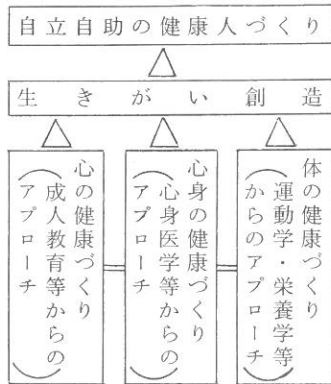 自立自助の健康人づくり
生きがい創造
体の健康づくり
（運動学・栄養学等
からのアプローチ）
心身の健康づくり
（心身医学等からの
アプローチ）
心の健康づくり
（成人教育等からの
アプローチ）